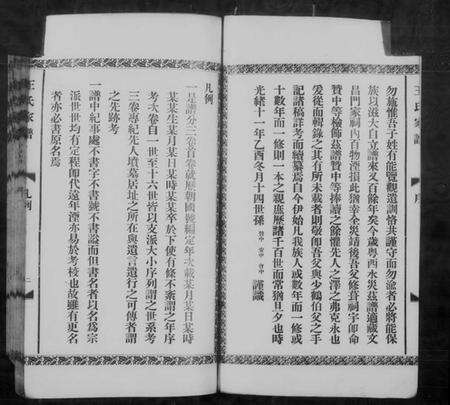 王氏家譜
序
勿施懼吾子姓有能覽觀遺訓恪共謹守而勿渝者必將能保
族以滋大自立譜來又百餘年矣今歲粤西水災茲譜適藏文
昌門家祠內百物湮損此獨幸全災靖後吾父修葺祠宇即命
贊中等檢飾茲譜贊中等捧讀之餘懼先人之澤之弗克永也
爰從而輯錄之其有所未載者則敬即吾父與少鶴伯父之手
記諸稿詳考而續纂焉自今伊始凡我族人或數年而一修或
十數年而一修則一本之親庶歷諸千百世而常猶旦夕也時
光緒十一年乙酉冬月十四世孫 贊中 安中 謹識
凡例
一是譜分三卷首卷就歷朝國號編定年次載某月某日某時
某某生某月某日某時某某卒於下使有條不紊謂之年序
考次卷自一世至十六世皆以支派大小序列謂之世系考
三卷專紀先人墳墓居址之所在與遺言遺行之可傳者謂
之先跡考
一譜中紀事處不書字不書號不書訟而但書名者以名為宗
派世世均有定程即代遠年湮亦易於考核也故雖有更名
者亦必書原名焉
王氏家譜
凡例
一